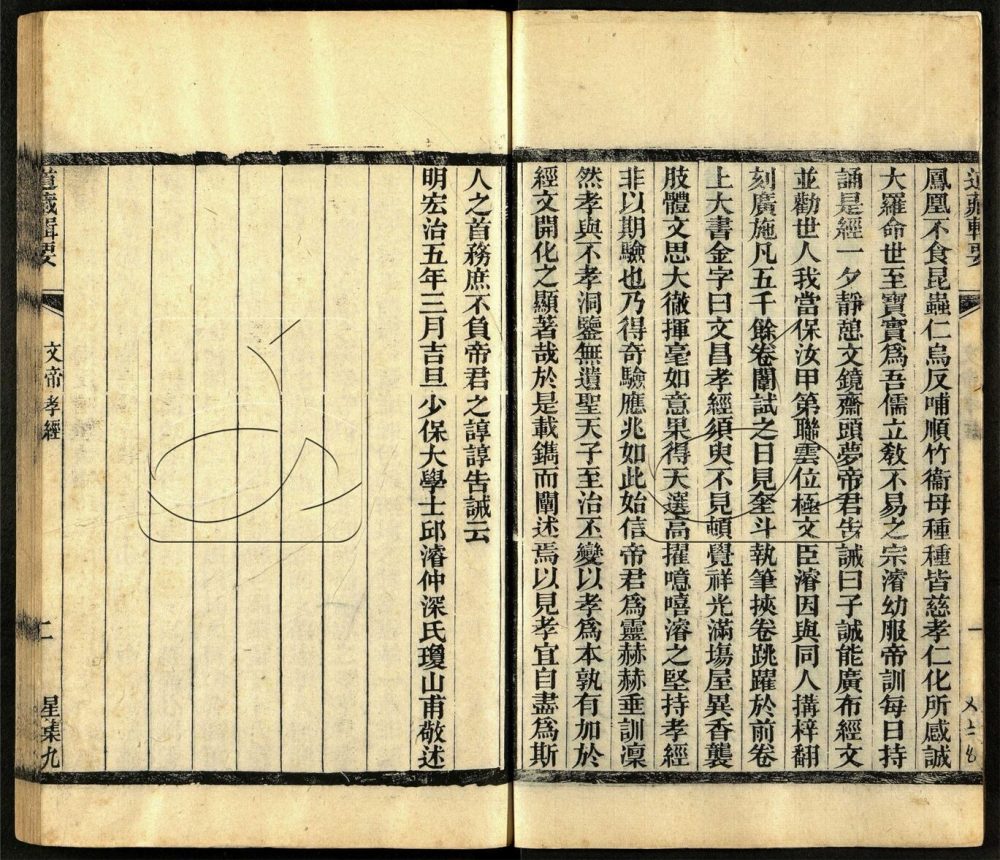 道藏輯要
鳳凰不食昆蟲仁烏反哺順竹衞母種種皆慈孝仁化所感誠
大羅命世至寶實爲吾儒立敎不易之宗濬幼服帝訓每日持
誦是經一夕靜憩文鏡齋頭夢帝君告誡曰子誠能廣布經文
並勸世人我當保汝甲第聯雲位極文臣濬因與同人搆梓翻
刻廣施凡五千餘卷闈試之日見奎斗執筆挾卷跳躍於前卷
上大書金字曰文昌孝經須臾不見頓覺祥光滿塲屋異香襲
肢體文思大徹揮毫如意果得天選高擢噫嘻濬之堅持孝經
非以期驗也乃得奇驗應兆如此始信帝君爲靈赫赫垂訓凜
然孝與不孝洞鑒無遺聖天子至治丕變以孝爲本孰有加於
經文開化之顯著哉於是載鐫而闡述焉以見孝宜自盡爲斯
人之首務庶不負帝君之諄諄告誡云
明宏治五年三月吉旦少保大學士邱濬仲深氏瓊山甫敬述
道藏輯要
文帝孝經
二
星集九